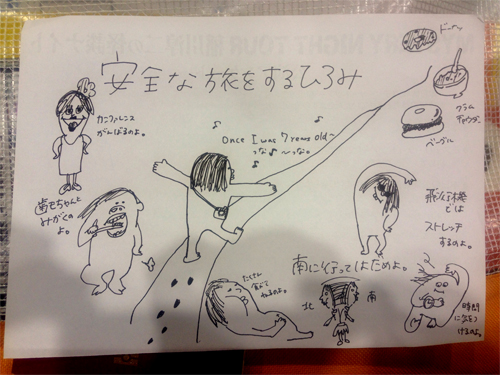 安全な旅をするひろみ
ドーナ
クラム
チャウダー
ベーグル
カンファレンス
がんばるのよ。
Once I was 7 years old~
っな♪~っな。
歯もちゃんと
みがくの
よ。
飛行機
では
ストレッチ
するのよ。
南に行ってはだめよ。
北
南
たくさん
ねるのよ。
時間
に気をつ
けるのよ。